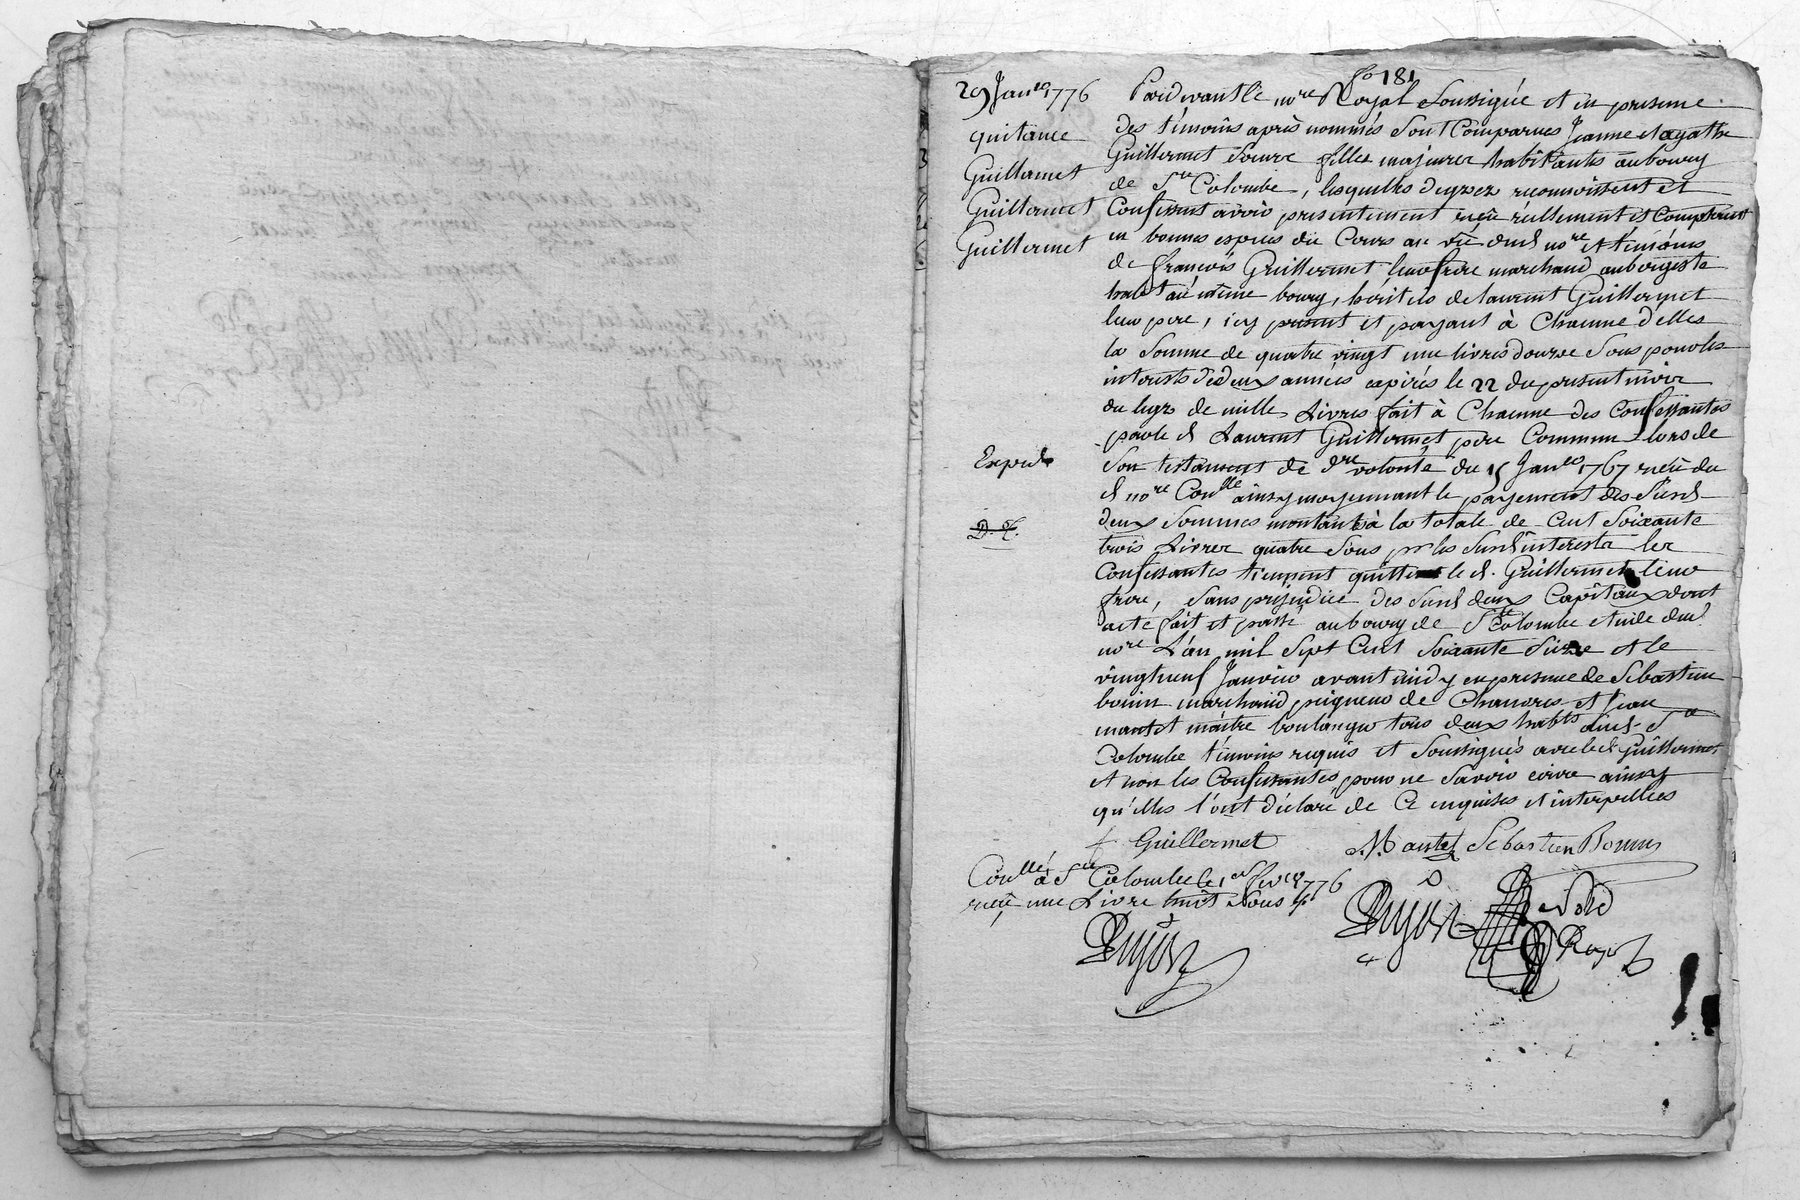 fo 181
29 Janro 1776
quitance
Guillermet
Guillermet
Guillermet
Expied
D. C.
Pardevant le nore Royal Soussigné et en presence
des témoins après nommés Sont Comparues Jeanne et agathe
Guillermet Soeurs filles majeures habitantes au bourg
de Ste Colombe, lesquelles de grez reconnoissent et
Confessent avoir presentement reçu réellement et Comptant
en bonnes especes du Cours au vû dud nore et témoins
de françois Guillermet leur frere marchand aubergiste
habt au même bourg, héritier de laurent Guillermet
leur pere, icy present et payant à Chacune d'elles
la Somme de quatre vingt une livres douze Sous pour les
interests des deux années expirés le 22 du present mois
du legs de mille Livres fait à Chacune des Confessantes
par led Laurent Guillermet pere Commun lors de
Son testament de dre volonté du 15 Janro 1767 reçu du
d nore Conllé ainsy moyennant le payement des Susd
deux Sommes montant à la totale de Cent Soixante
trois Livres quatre Sous pr les Susd interests les
Confessantes tiennent quitte le d. Guillermet leur
frere, Sans préjudice des Susd deux Capitaux dont
acte fait et passé au bourg de Ste Colombe etude dud
nore L'an mil Sept Cent Soixante Sieze et le
vingtneuf Janvier avant midy en presence de Sébastien
bonin marchand peigneur de Chanvres et Jean
mantet maître boulanger tous deux habts dud Ste
Colombe témoins requis et Soussignés avec led Guillermet
et non les Confessantes pour ne Savoir écrire ainsy
qu'elles l'ont déclaré de Ce enquises et interpellées
f Guillermet
M antet Sebastien Bonin
Conllé à Ste Colombe le 1er fevro 1776
reçu une Livre huit Sous
Pujon
Pujon
nore
Royal